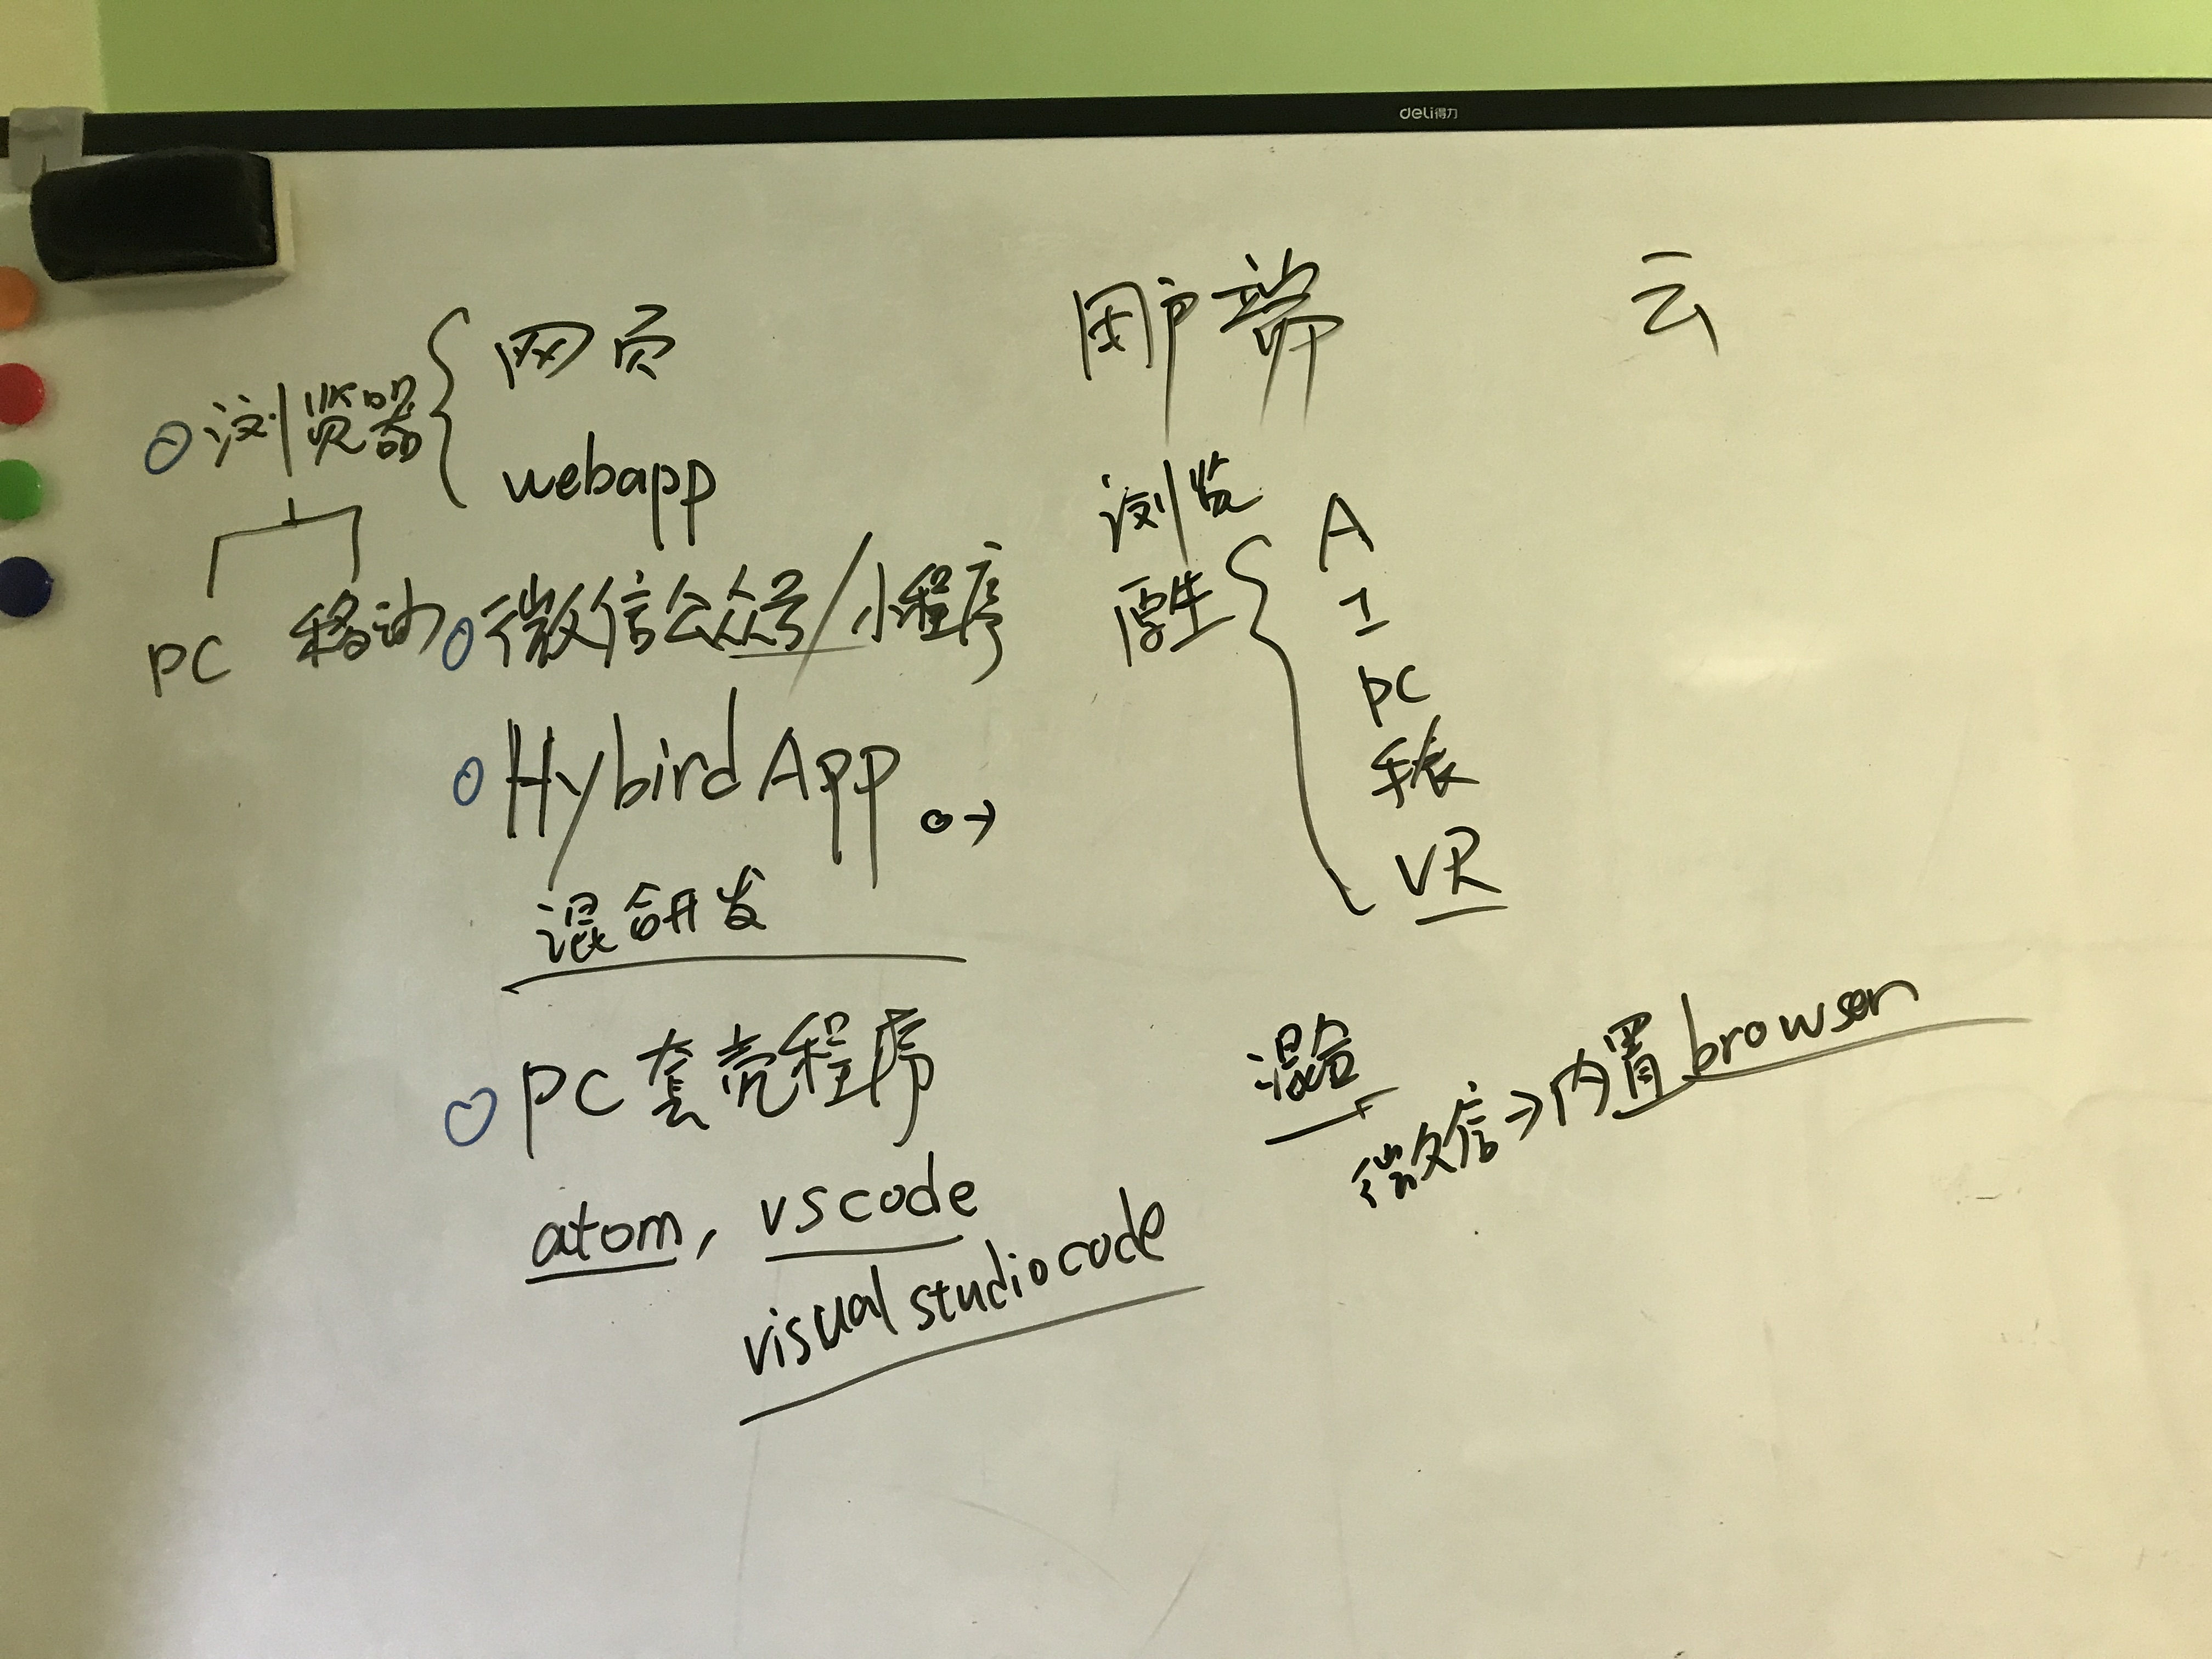 deli得力
网页
浏览器
webapp
PC 移动
微信公众号/小程序
Hybird App
混合研发
PC套壳程序
atom, vscode
visual studio code
用户端 云
浏览
原生
A
I
PC
手表
VR
混合
微信→内置browser